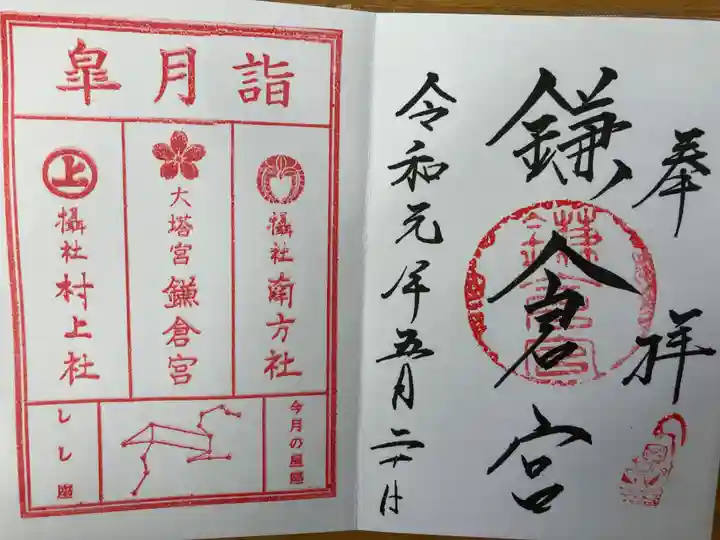 奉拝
鎌倉宮
令和元年五月二十日
皐月詣
攝社 南方社
大塔宮 鎌倉宮
上
攝社 村上社
今月の星座
しし座